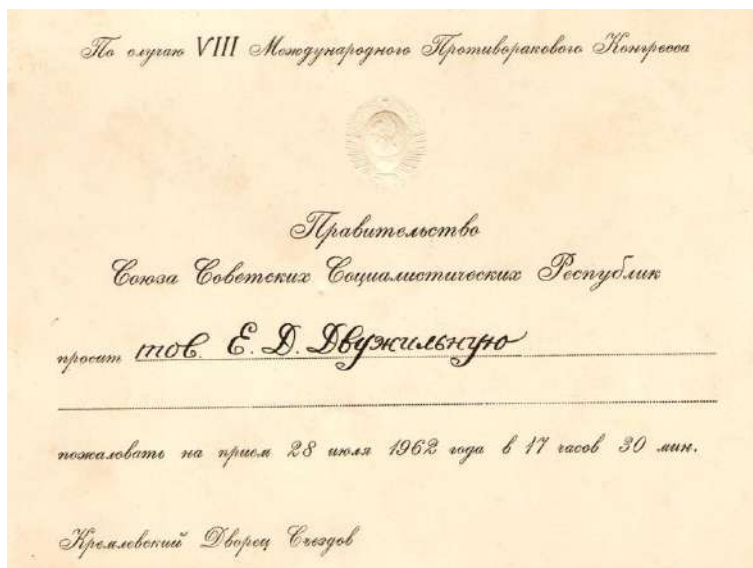 По случаю VIII Международного Противоракового Конгресса
Правительство
Союза Советских Социалистических Республик
просит тов. Е. Д. Двужильную
пожаловать на прием 28 июля 1962 года в 17 часов 30 мин.
Кремлевский Дворец Съездов